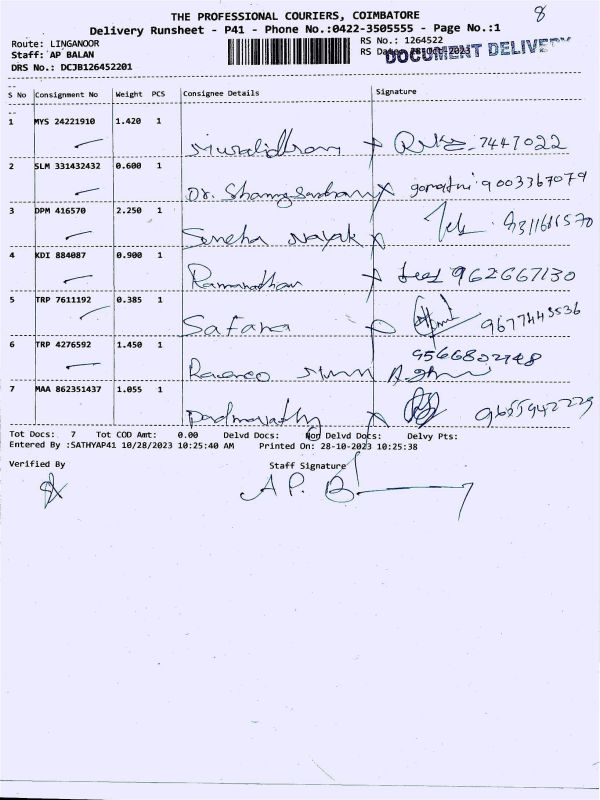 8
THE PROFESSIONAL COURIERS, COIMBATORE
Delivery Runsheet - P41 - Phone No.:0422-3505555 - Page No.:1
Route: LINGANOOR
RS No.: 1264522
Staff: AP BALAN
RS Date: 28-Oct-2023
DOCUMENT DELIVERY
DRS No.: DCJB126452201
S No Consignment No Weight PCS Consignee Details Signature
1 MYS 24221910 1.420 1
Muralidharan 7447022
2 SLM 331432432 0.600 1
Dr. gomathi 9003367079
3 DPM 416570 2.250 1
Sneha Nayak
4 KDI 884087 0.900 1
Ramanathan 962667130
5 TRP 7611192 0.385 1
Safana 9677443536
6 TRP 4276592 1.450 1
9566802748
7 MAA 862351437 1.055 1
Padmavathy 9655942229
Tot Docs: 7 Tot COD Amt: 0.00 Delvd Docs: Non Delvd Docs: Delvy Pts:
Entered By :SATHYAP41 10/28/2023 10:25:40 AM Printed On: 28-10-2023 10:25:38
Verified By Staff Signature
A P. B